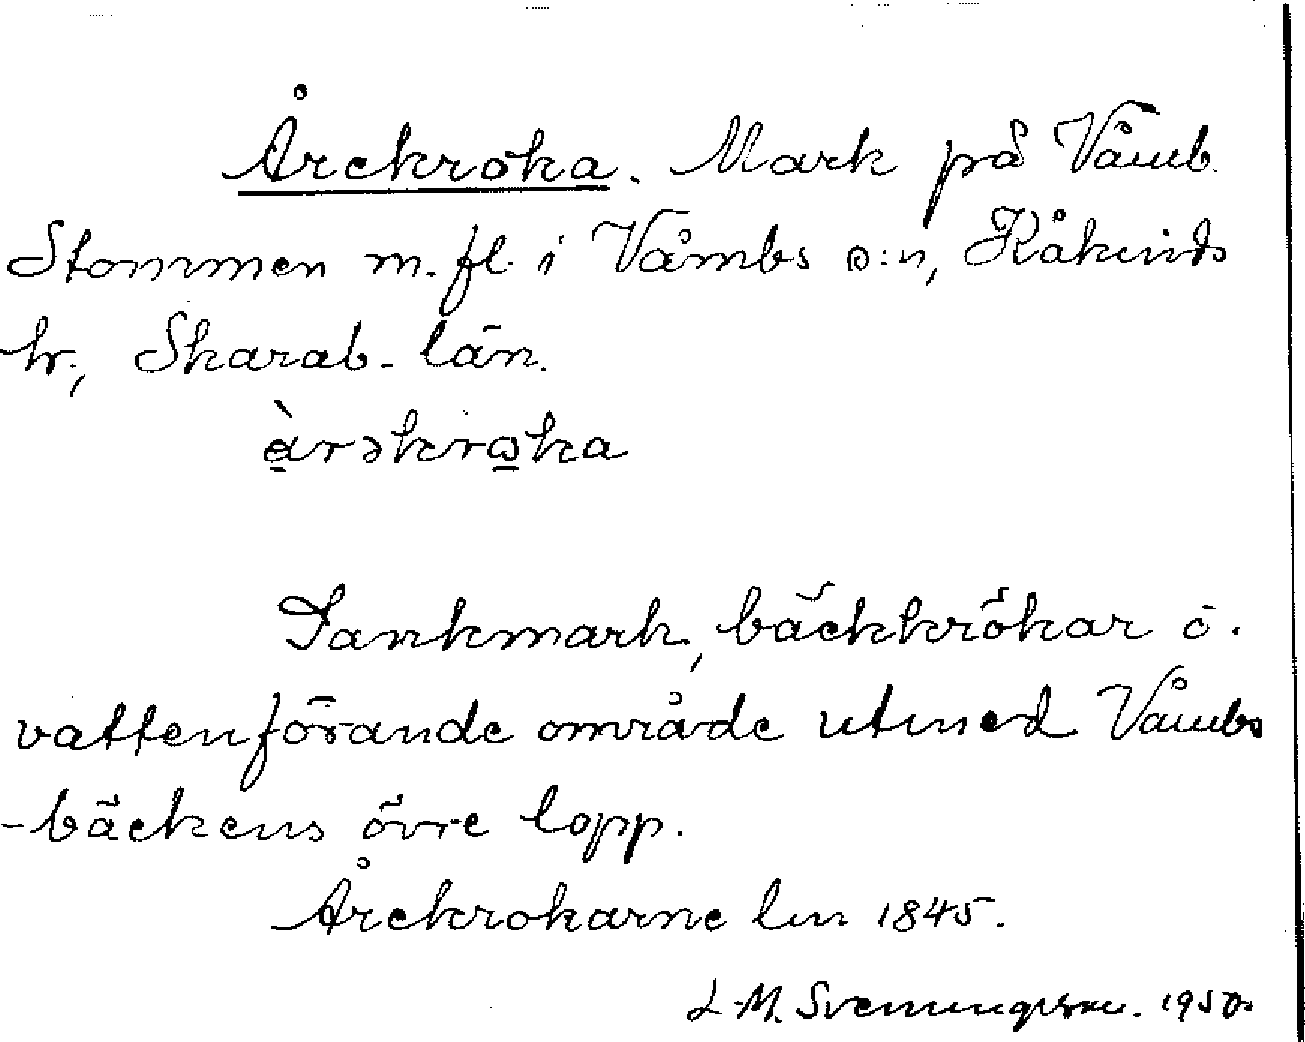 Årekroka. Mark på Våmb
Stommen m.fl. i Våmbs s:n, Kåkinds
hr, Skarab. län.
àrəkrωka
Sankmark, bäckkrökar o.
vattenförande område utmed Våmbs
-bäckens övre lopp.
Årekrokarne lm 1845.
L.M. Svenungsson. 1950.